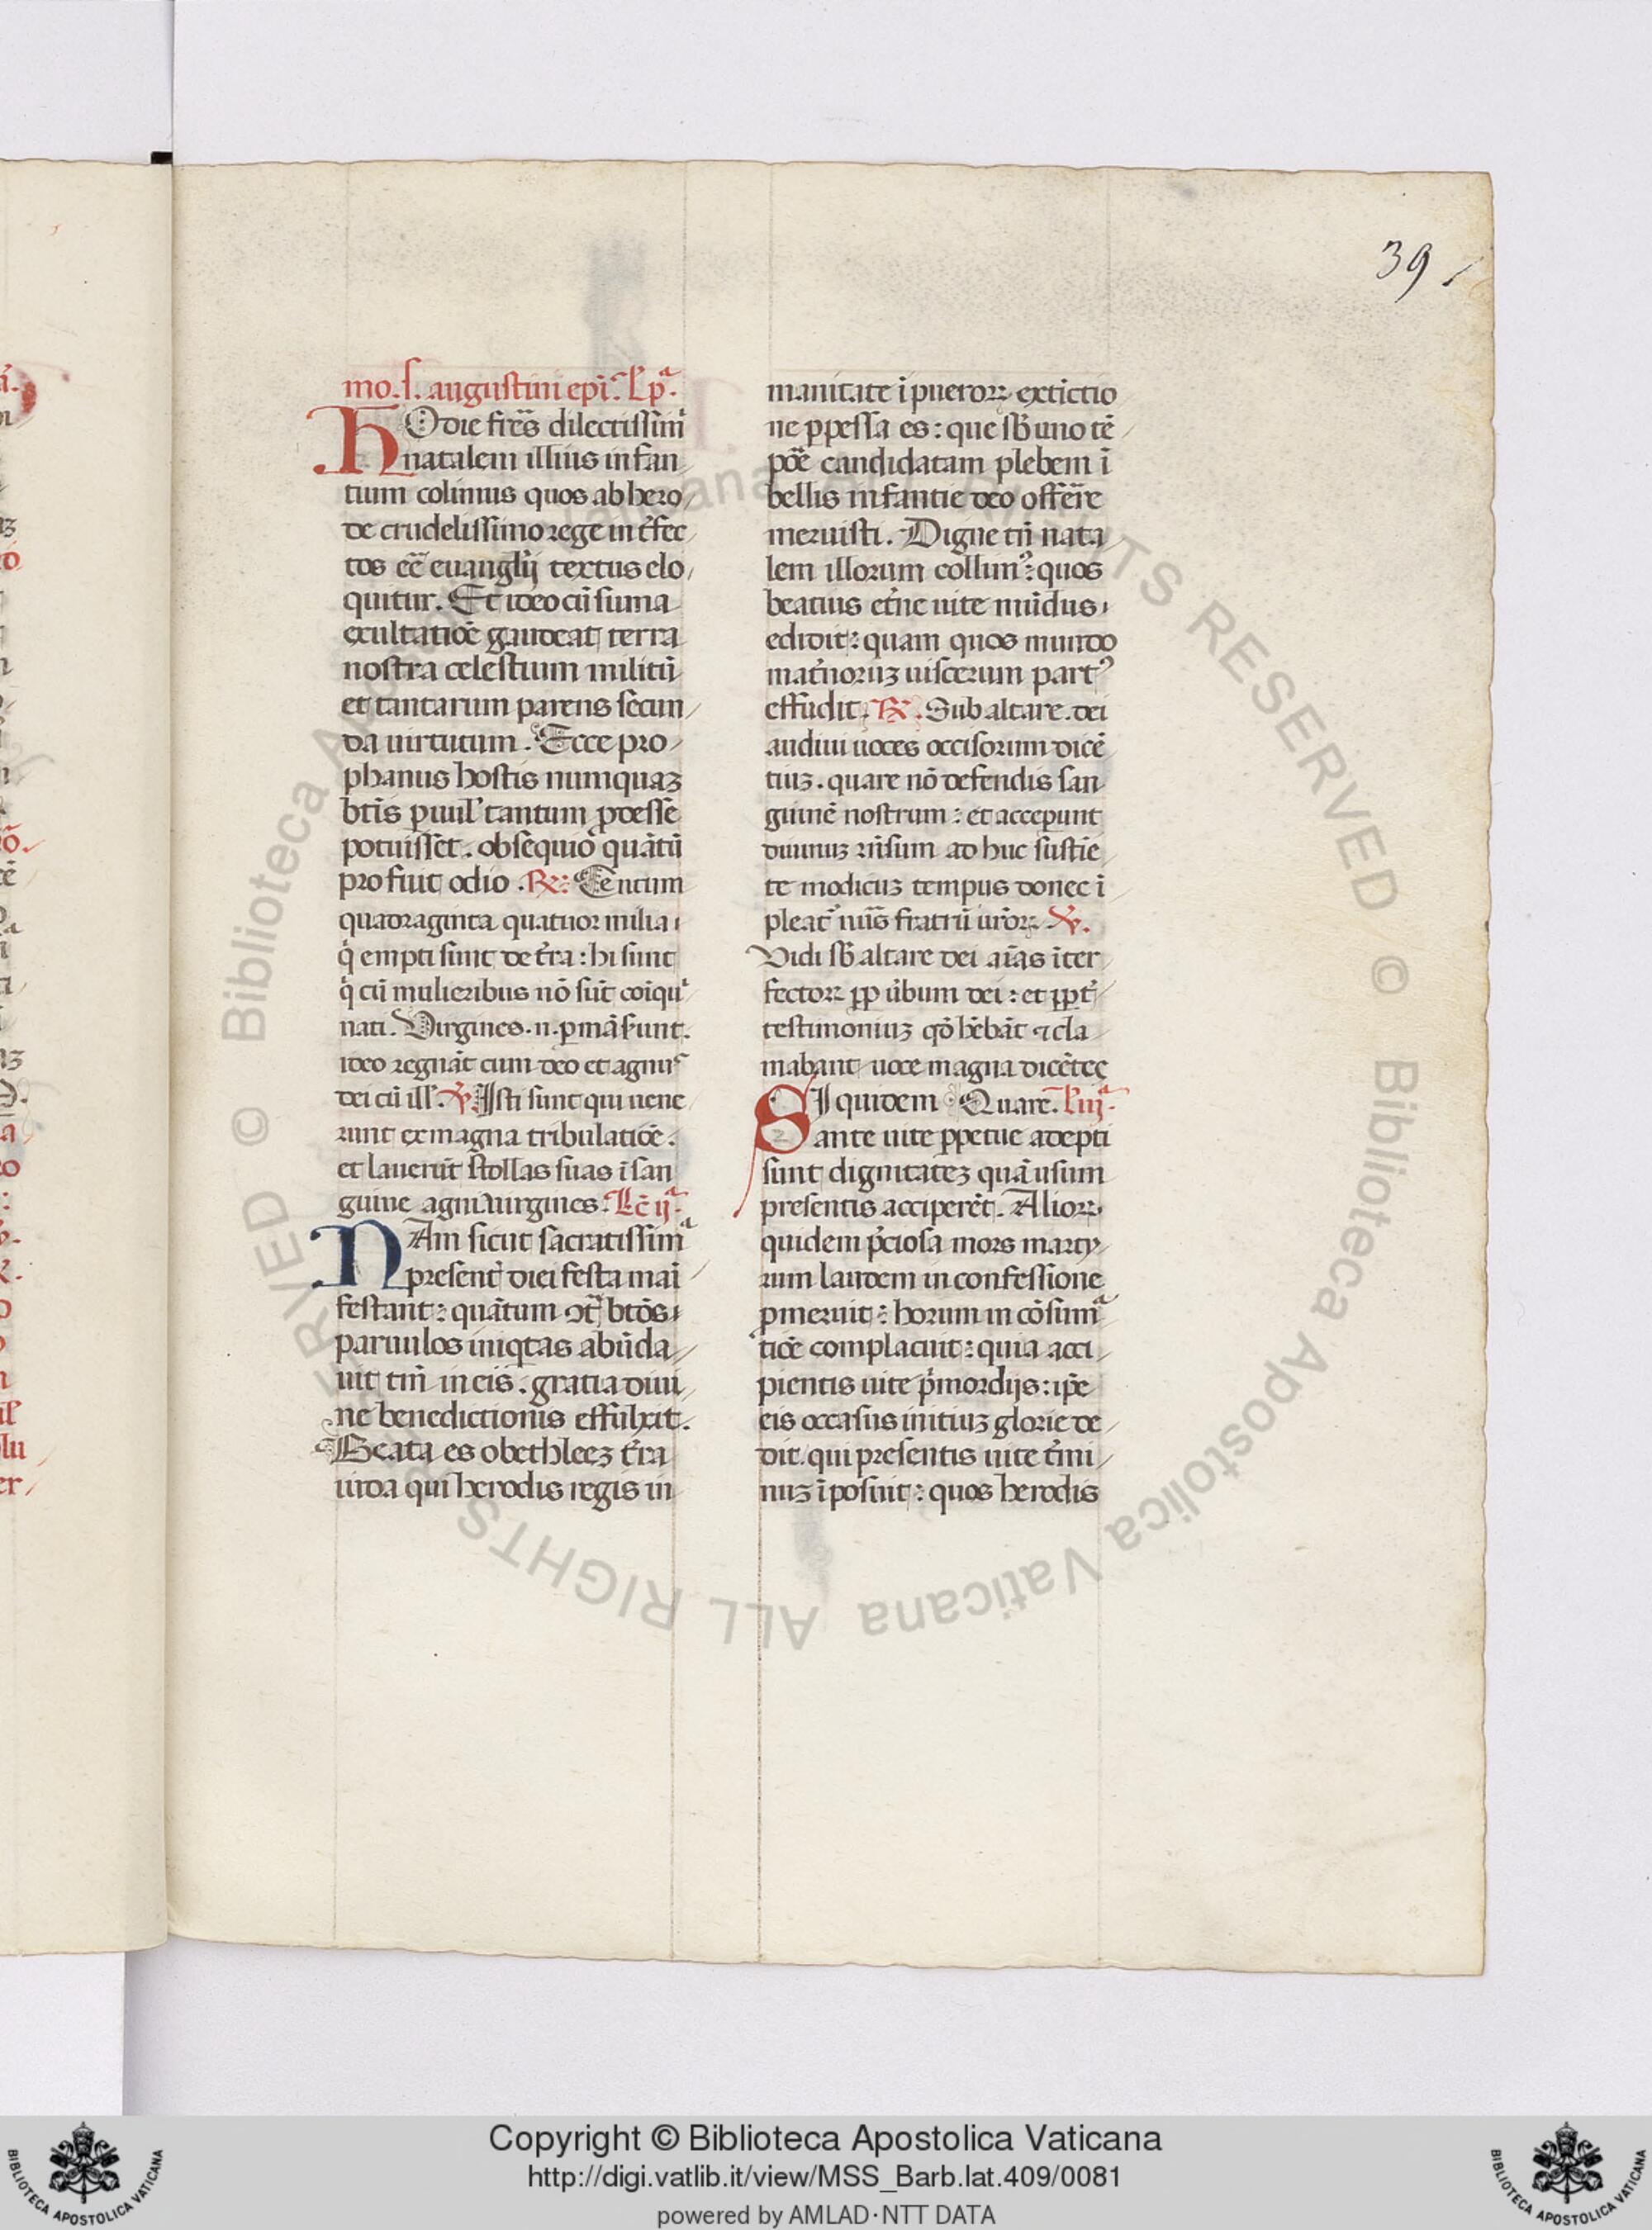 39
mo. s. augustini epi. L p.ª
HOdie fr̃es dilectissimi
natalem illius infan
tium colimus quos ab hero
de crudelissimo rege int̃fec
tos eẽ euanglij textus elo
quitur. Et ideo cũ suma
exultatiõe gaudeat terra
nostra celestium militũ
et tantarum parens fecun
da uirtutum. Ecce pro
phanus hostis numquaꝫ
bt̃is puul' tantum p̱desse
potuisset. obsequio quãtũ
profuit odio. ℟: Centum
quadraginta quatuor milia
q̇ empti sunt de t̃ra: hi sunt
q̇ cũ mulieribus nõ sũt coĩqui
nati. Virgines .n. p̱mãserunt.
ideo regnãt cum deo et agnus
dei cũ ill'. ℣. Isti sunt qui uene
runt ex magna tribulatiõe.
et lauerũt stollas suas ĩ san
guine agni. uirgines. Lc̃ ijª.
NAm sicut sacratissimª
present̃ diei festa mani
festant: quãtum 9tª bt̃os
paruulos iniqtas abũda
uit tm̃ in eis. gratia diui
ne benedictionis effulxit.
Beata es o bethleeꝫ t̃ra
iuda qui herodis regis in
manitate ĩ pueroꝝ extĩctio
ne p̱pessa es: que sb̃ uno tẽ
põe candidatam plebem ĩ
bellis infantie deo offer̃e
meruisti. Digne tñ nata
lem illorum collim9: quos
beatius et̃ne uite mũdus
edidit: quam quos mundo
mat̃noruꝫ uiscerum part9
effudit. ℟. Sub altare dei
audiui uoces occisorum dicẽ
tiuꝫ. quare nõ defendis san
guinẽ nostrum: et acceperunt
diuinuꝫ rñsum ad huc sustĩe
te modicuꝫ tempus donec ĩ
pleat̃ nũs fratrũ ur̃oꝝ. ℣.
Vidi sb̃ altare dei aĩas ĩter
fectoꝝ p̱p u̇bum dei: et p̱p̱t̃
testimoniuꝫ qõ hẽbãt ⁊ cla
mabant uoce magna dicẽtes
SI quidem Quare. L iijª.
ante uite p̱petue adepti
sunt dignitateꝫ quã usum
presentis acciperẽt. Alioꝝ
quidem p̃ciosa mors marty
rum laudem in confessione
p̱meruit: horum in cõsumª
tiõe complacuit: quia acci
pientis uite p̃mordijs: ip̃e
eis occasus initiuꝫ glorie de
dit. qui presentis uite t̃mi
nuꝫ ĩposuit: quos herodis
Copyright © Biblioteca Apostolica Vaticana
http://digi.vatlib.it/view/MSS_Barb.lat.409/0081
powered by AMLAD·NTT DATA